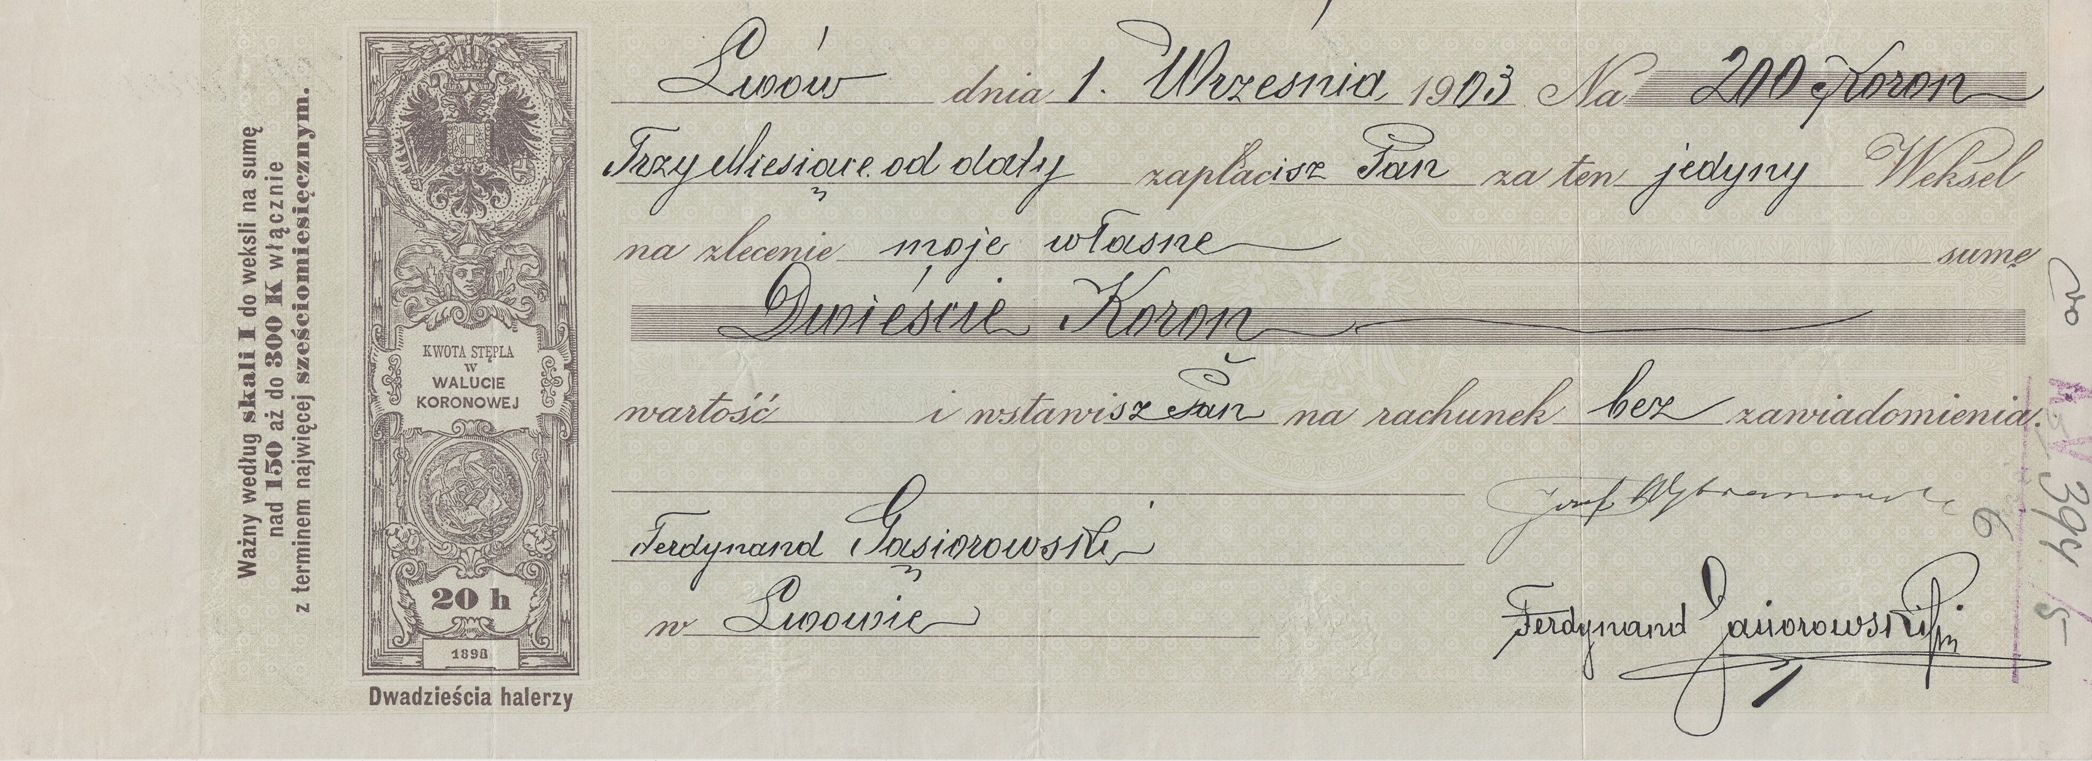 Ważny według skali I do weksli na sumę
nad 150 aż do 300 K włącznie
z terminem najwięcej sześciomiesięcznym.
KWOTA STĘPLA
W
WALUCIE
KORONOWEJ
20 h
1898
Dwadzieścia halerzy
Lwów dnia 1. Września 1903 Na 200 Koron
Trzy Miesiące od daty zapłacisz Pan za ten jedyny Weksel
na zlecenie moje własne sumę
Dwieście Koron
wartość i wstawisz Pan na rachunek bez zawiadomienia.
Józef
Ferdynand Gąsiorowski
w Lwowie
Ferdynand Gąsiorowski
394/5
6